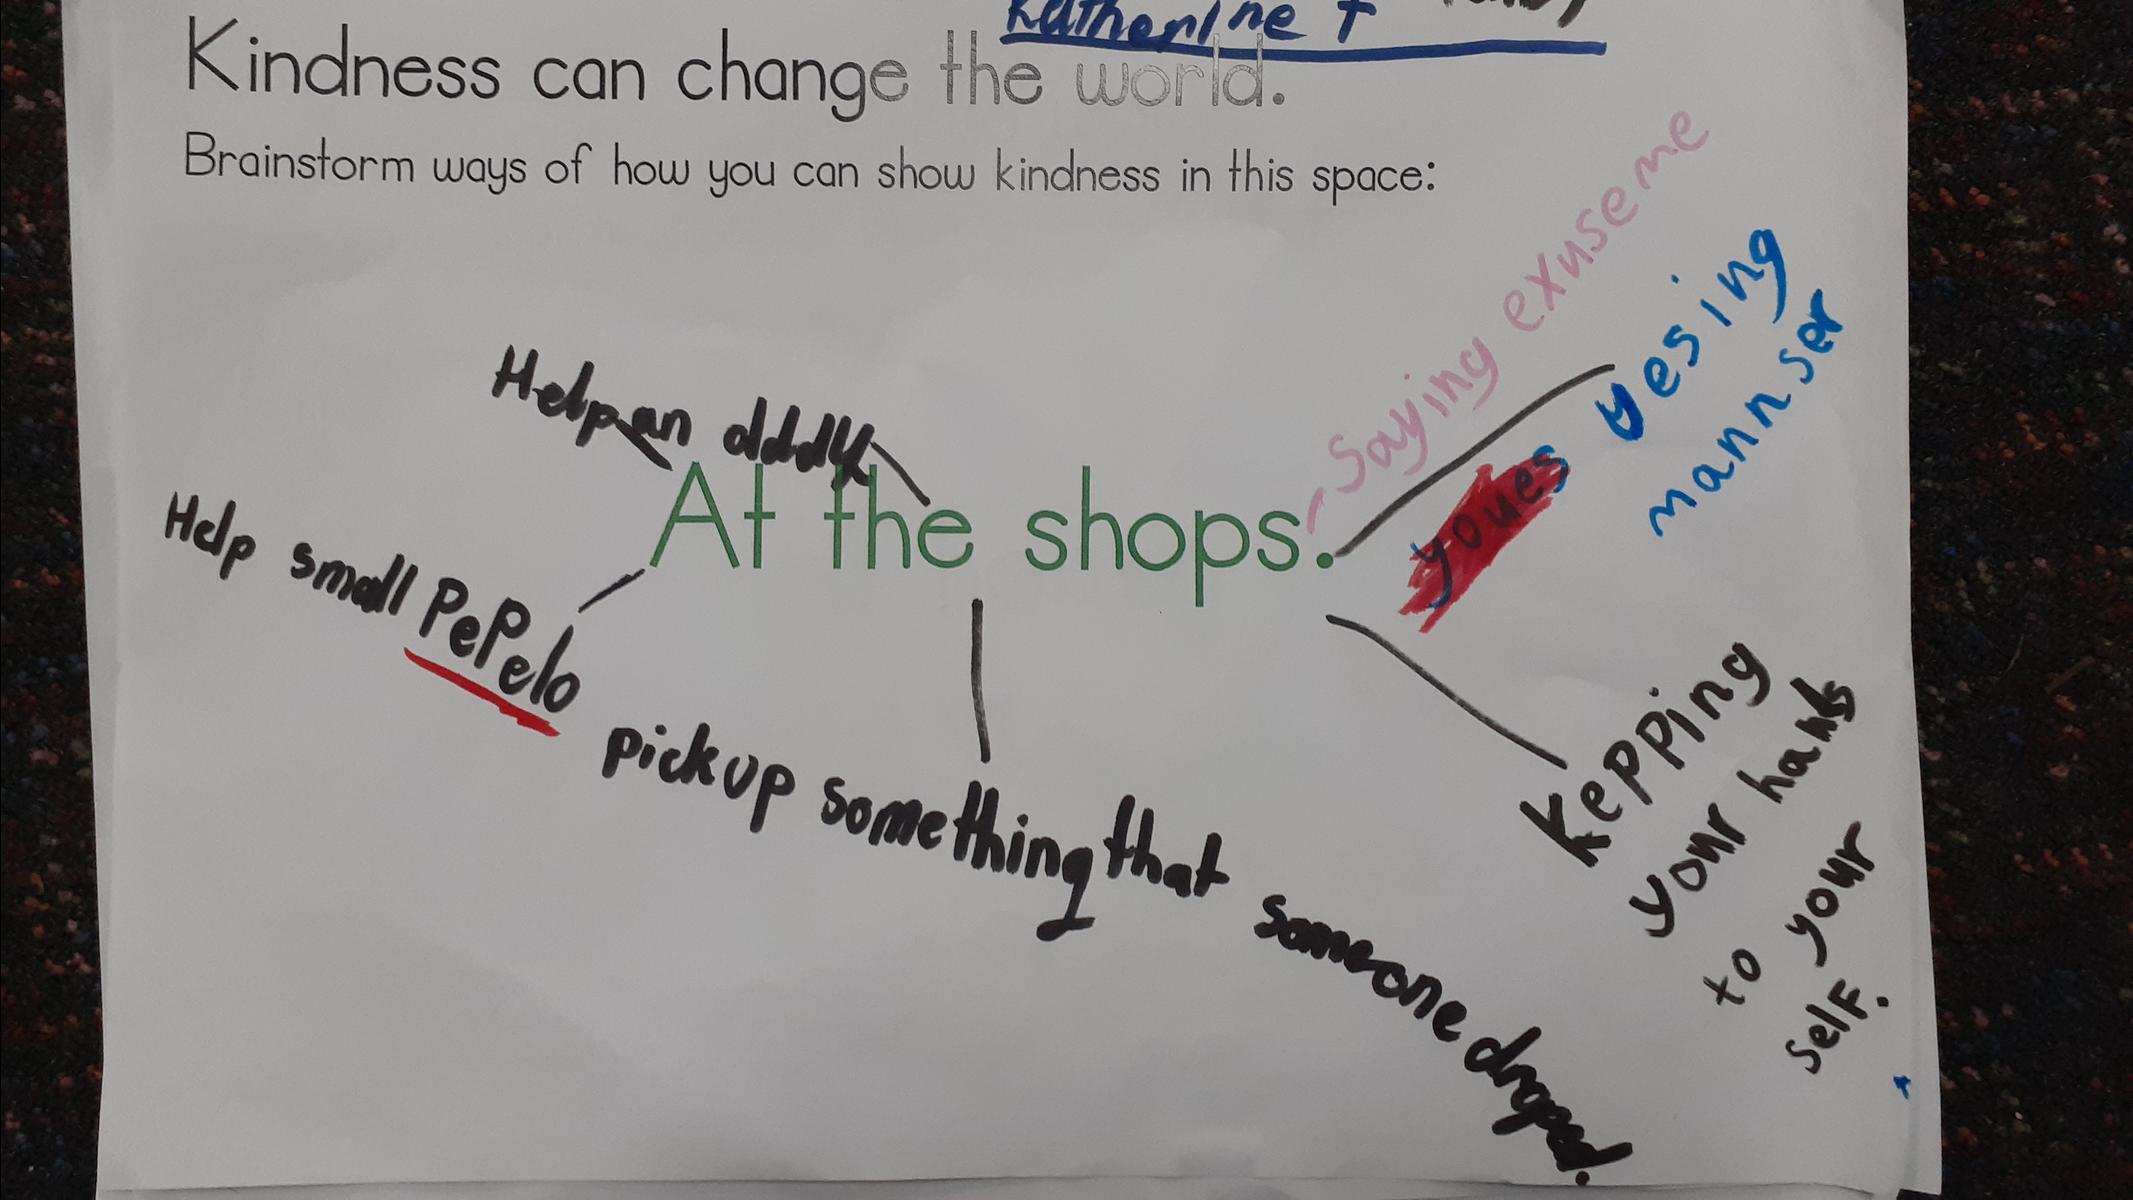 Katherine T
Kindness can change the world.
Brainstorm ways of how you can show kindness in this space:
Saying exuse me
yesing
mannser
youes
Help an
At the shops.
Help small PePelo
pick up something that someone droped.
kepping
your hands
to your
self.